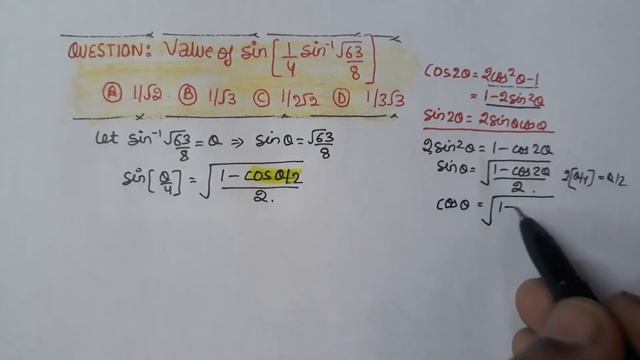 QUESTION: Value of sin[1/4 sin⁻¹ √63/8]
Ⓐ 1/√2 Ⓑ 1/√3 Ⓒ 1/2√2 Ⓓ 1/3√3
Let sin⁻¹ √63/8 = θ ⇒ sinθ = √63/8
sin[θ/4] = √(1 - cosθ/2)/2.
cos2θ = 2cos²θ-1
= 1-2sin²θ
sin2θ = 2sinθcosθ
2sin²θ = 1-cos2θ
sinθ = √(1-cos2θ)/2. 2[θ/4] = θ/2
cosθ = √1-